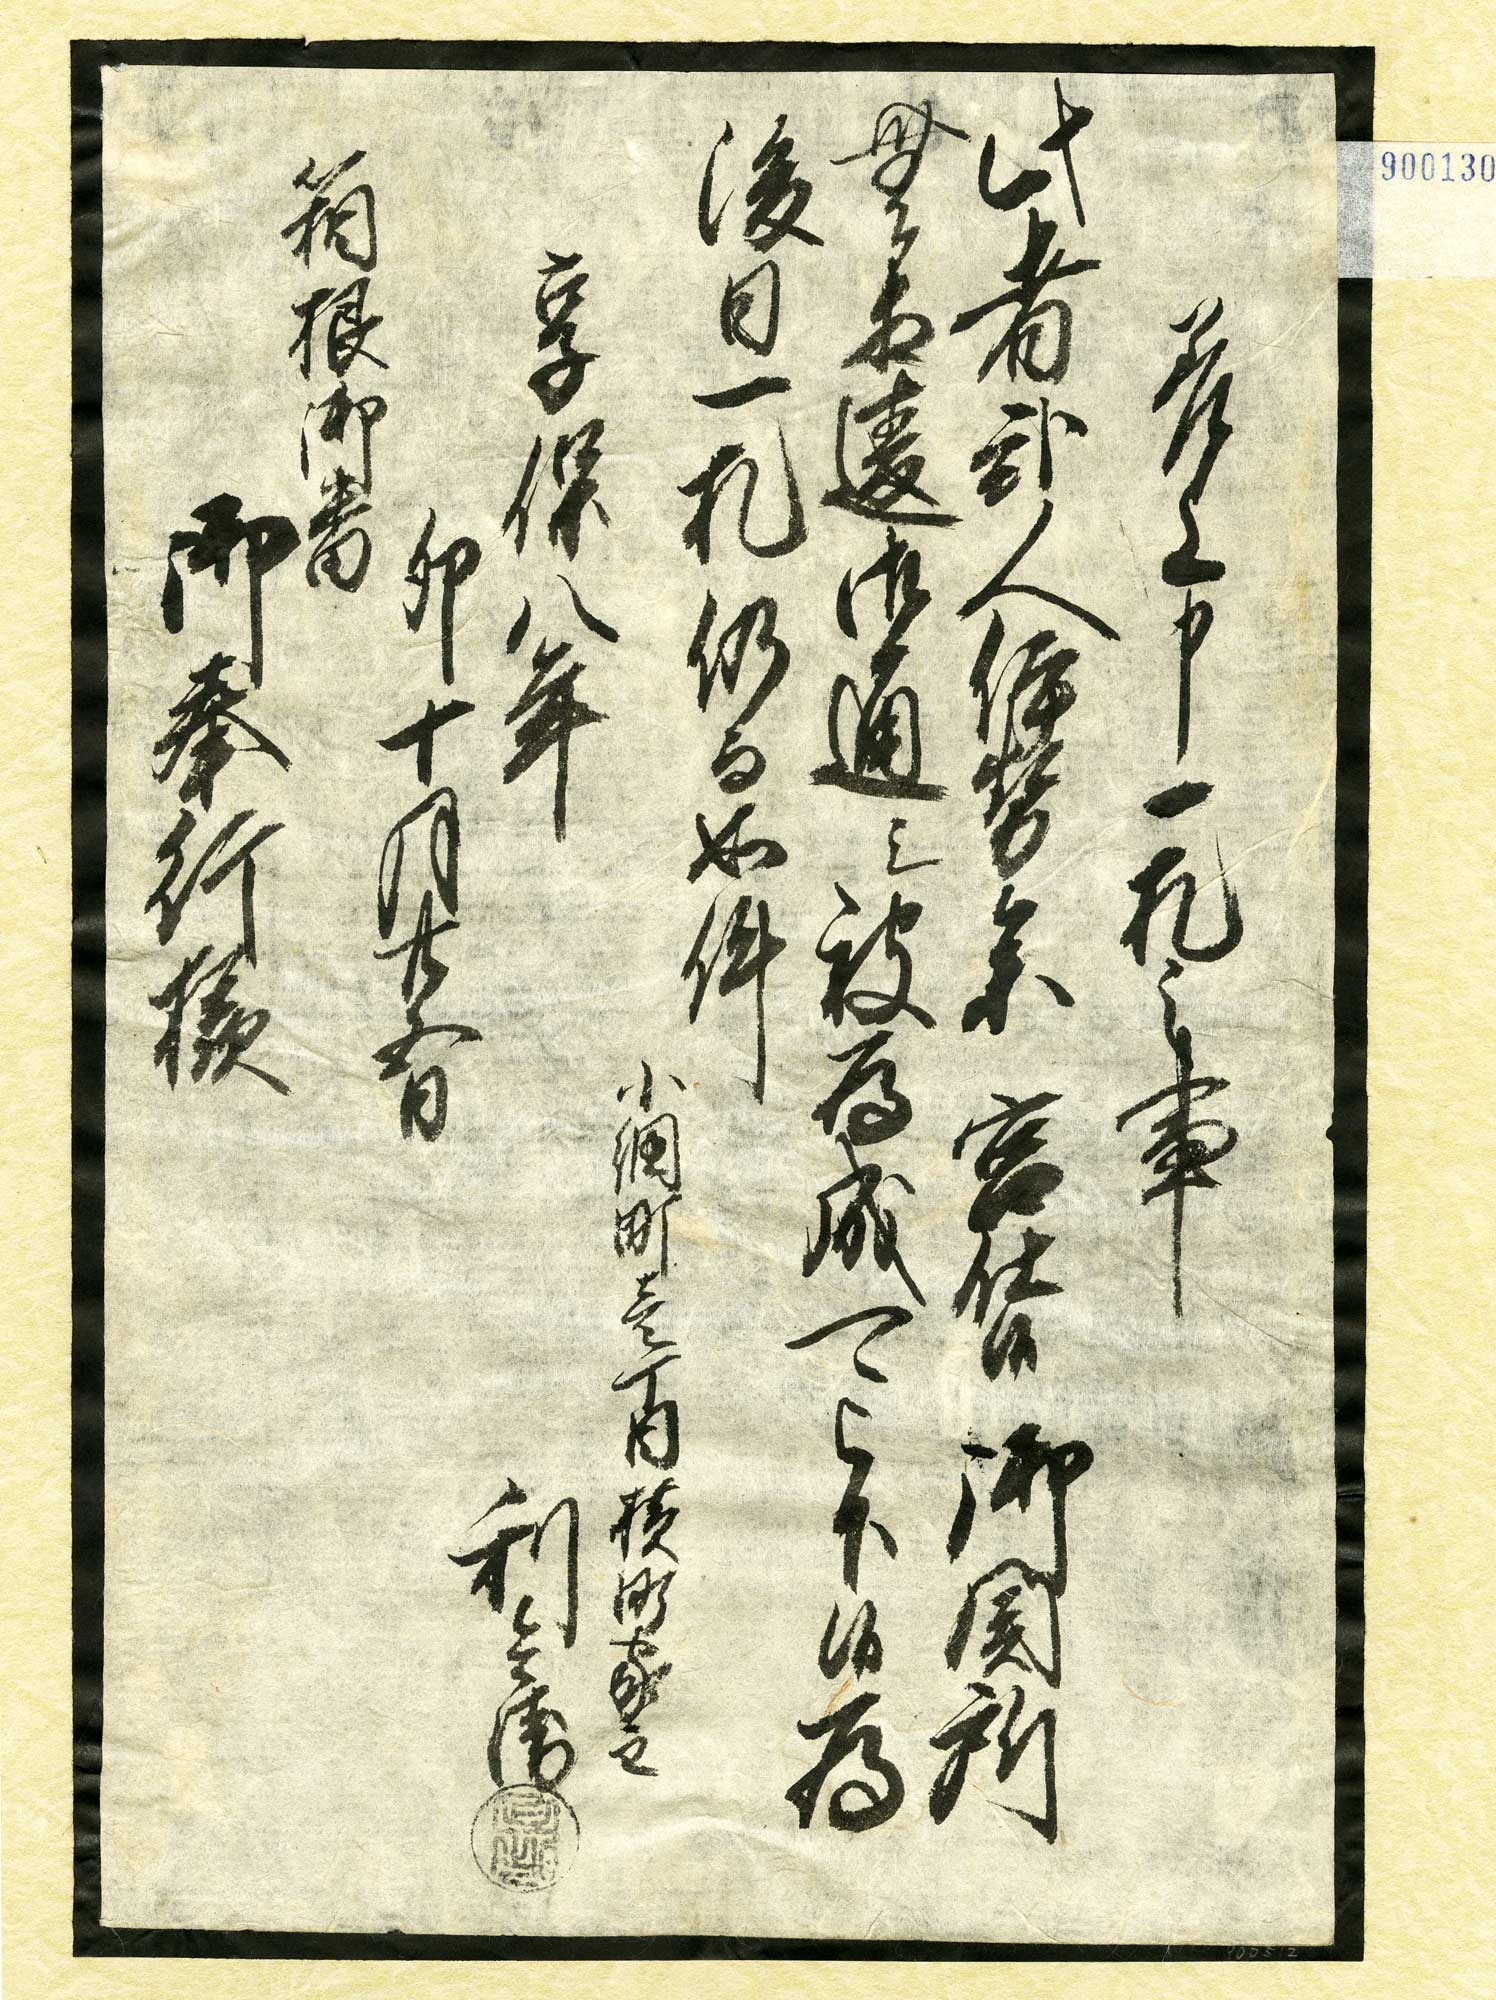 差上申一札之事
此者弐人伊勢参宮仕候御関所
無相違御通シ被為成可被下候為
後日一札仍而如件
享保八年
卯十月廿五日
小網町壱丁目横町家主
利兵衛
箱根御番
御奉行様
900130